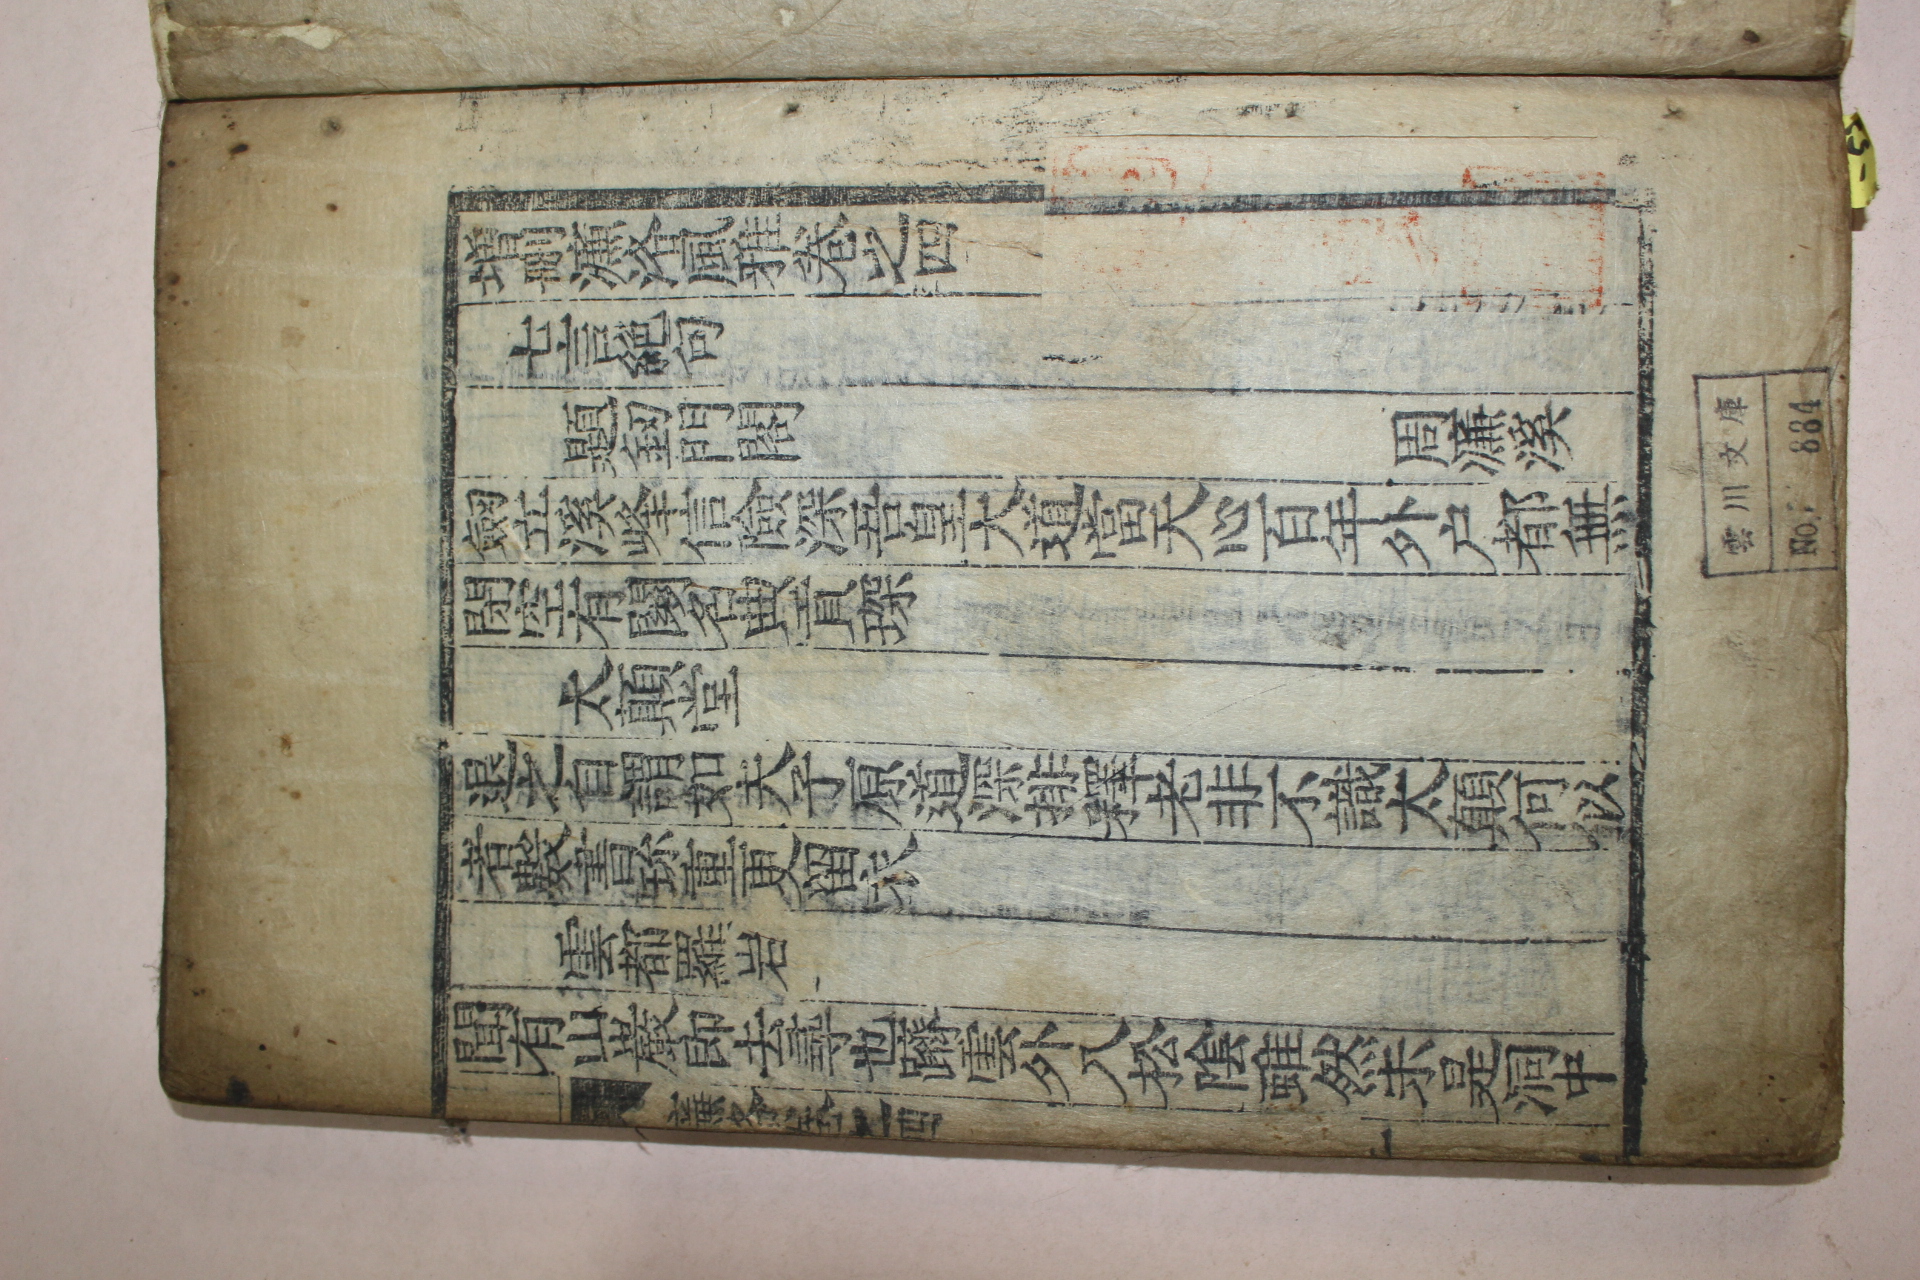 增刪濂洛風雅卷之四
七言絶句
題釰門閣 周濂溪
劒立溪峰信險深吾皇大道當天心百年外户都無
閉空有關名貢琛
太顚堂
退之自謂如夫子原道深排釋老非不識太顚何似
者數書珍重更留衣
雩都羅岩
聞有山巖即去尋也躋雲外入松陰雖然未是洞中
濂洛風雅 四
雲川文庫
No. 884